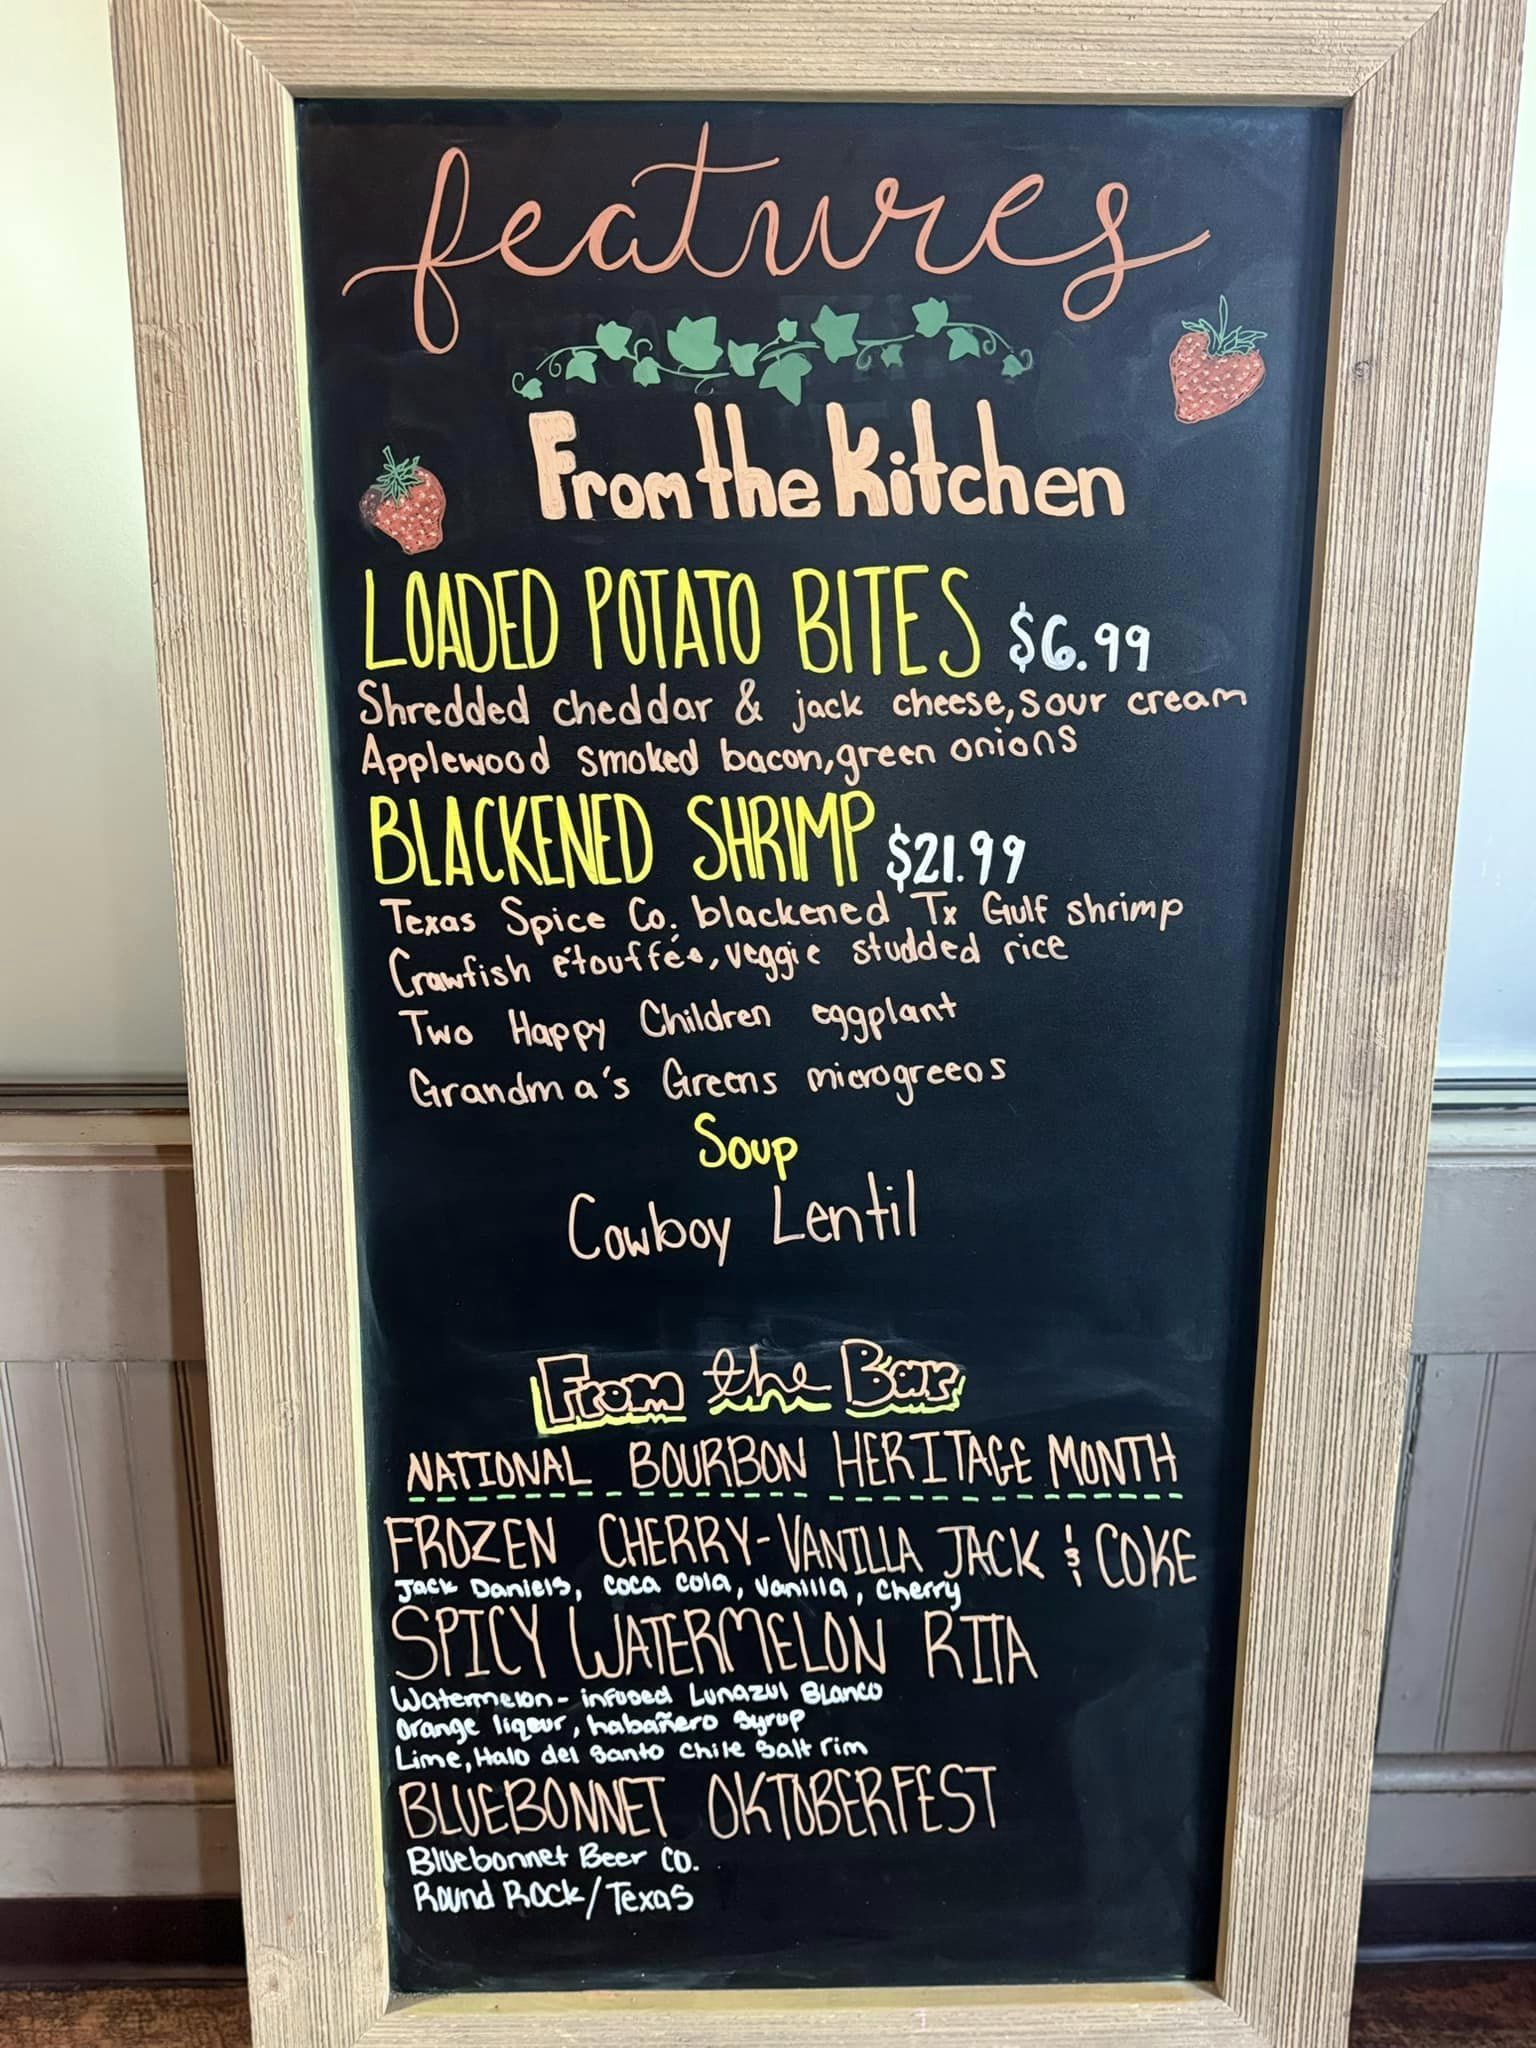 features
From the Kitchen
LOADED POTATO BITES $6.99
Shredded cheddar & jack cheese, sour cream
Applewood smoked bacon, green onions
BLACKENED SHRIMP $21.99
Texas Spice Co. blackened Tx Gulf shrimp
Crawfish étouffée, veggie studded rice
Two Happy Children eggplant
Grandma's Greens microgreeos
Soup
Cowboy Lentil
From the Bar
NATIONAL BOURBON HERITAGE MONTH
FROZEN CHERRY-VANILLA JACK & COKE
Jack Daniels, Coca Cola, Vanilla, Cherry
SPICY WATERMELON RITA
Watermelon-infused Lunazul Blanco
Orange liqeur, habañero syrup
Lime, Halo del Santo Chile Salt rim
BLUEBONNET OKTOBERFEST
Bluebonnet Beer CO.
Round Rock/Texas